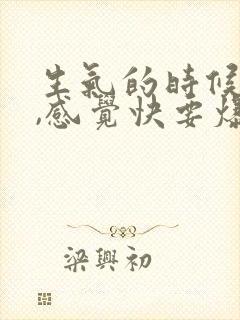 生氣的時候
,感覺快要爆
梁興初